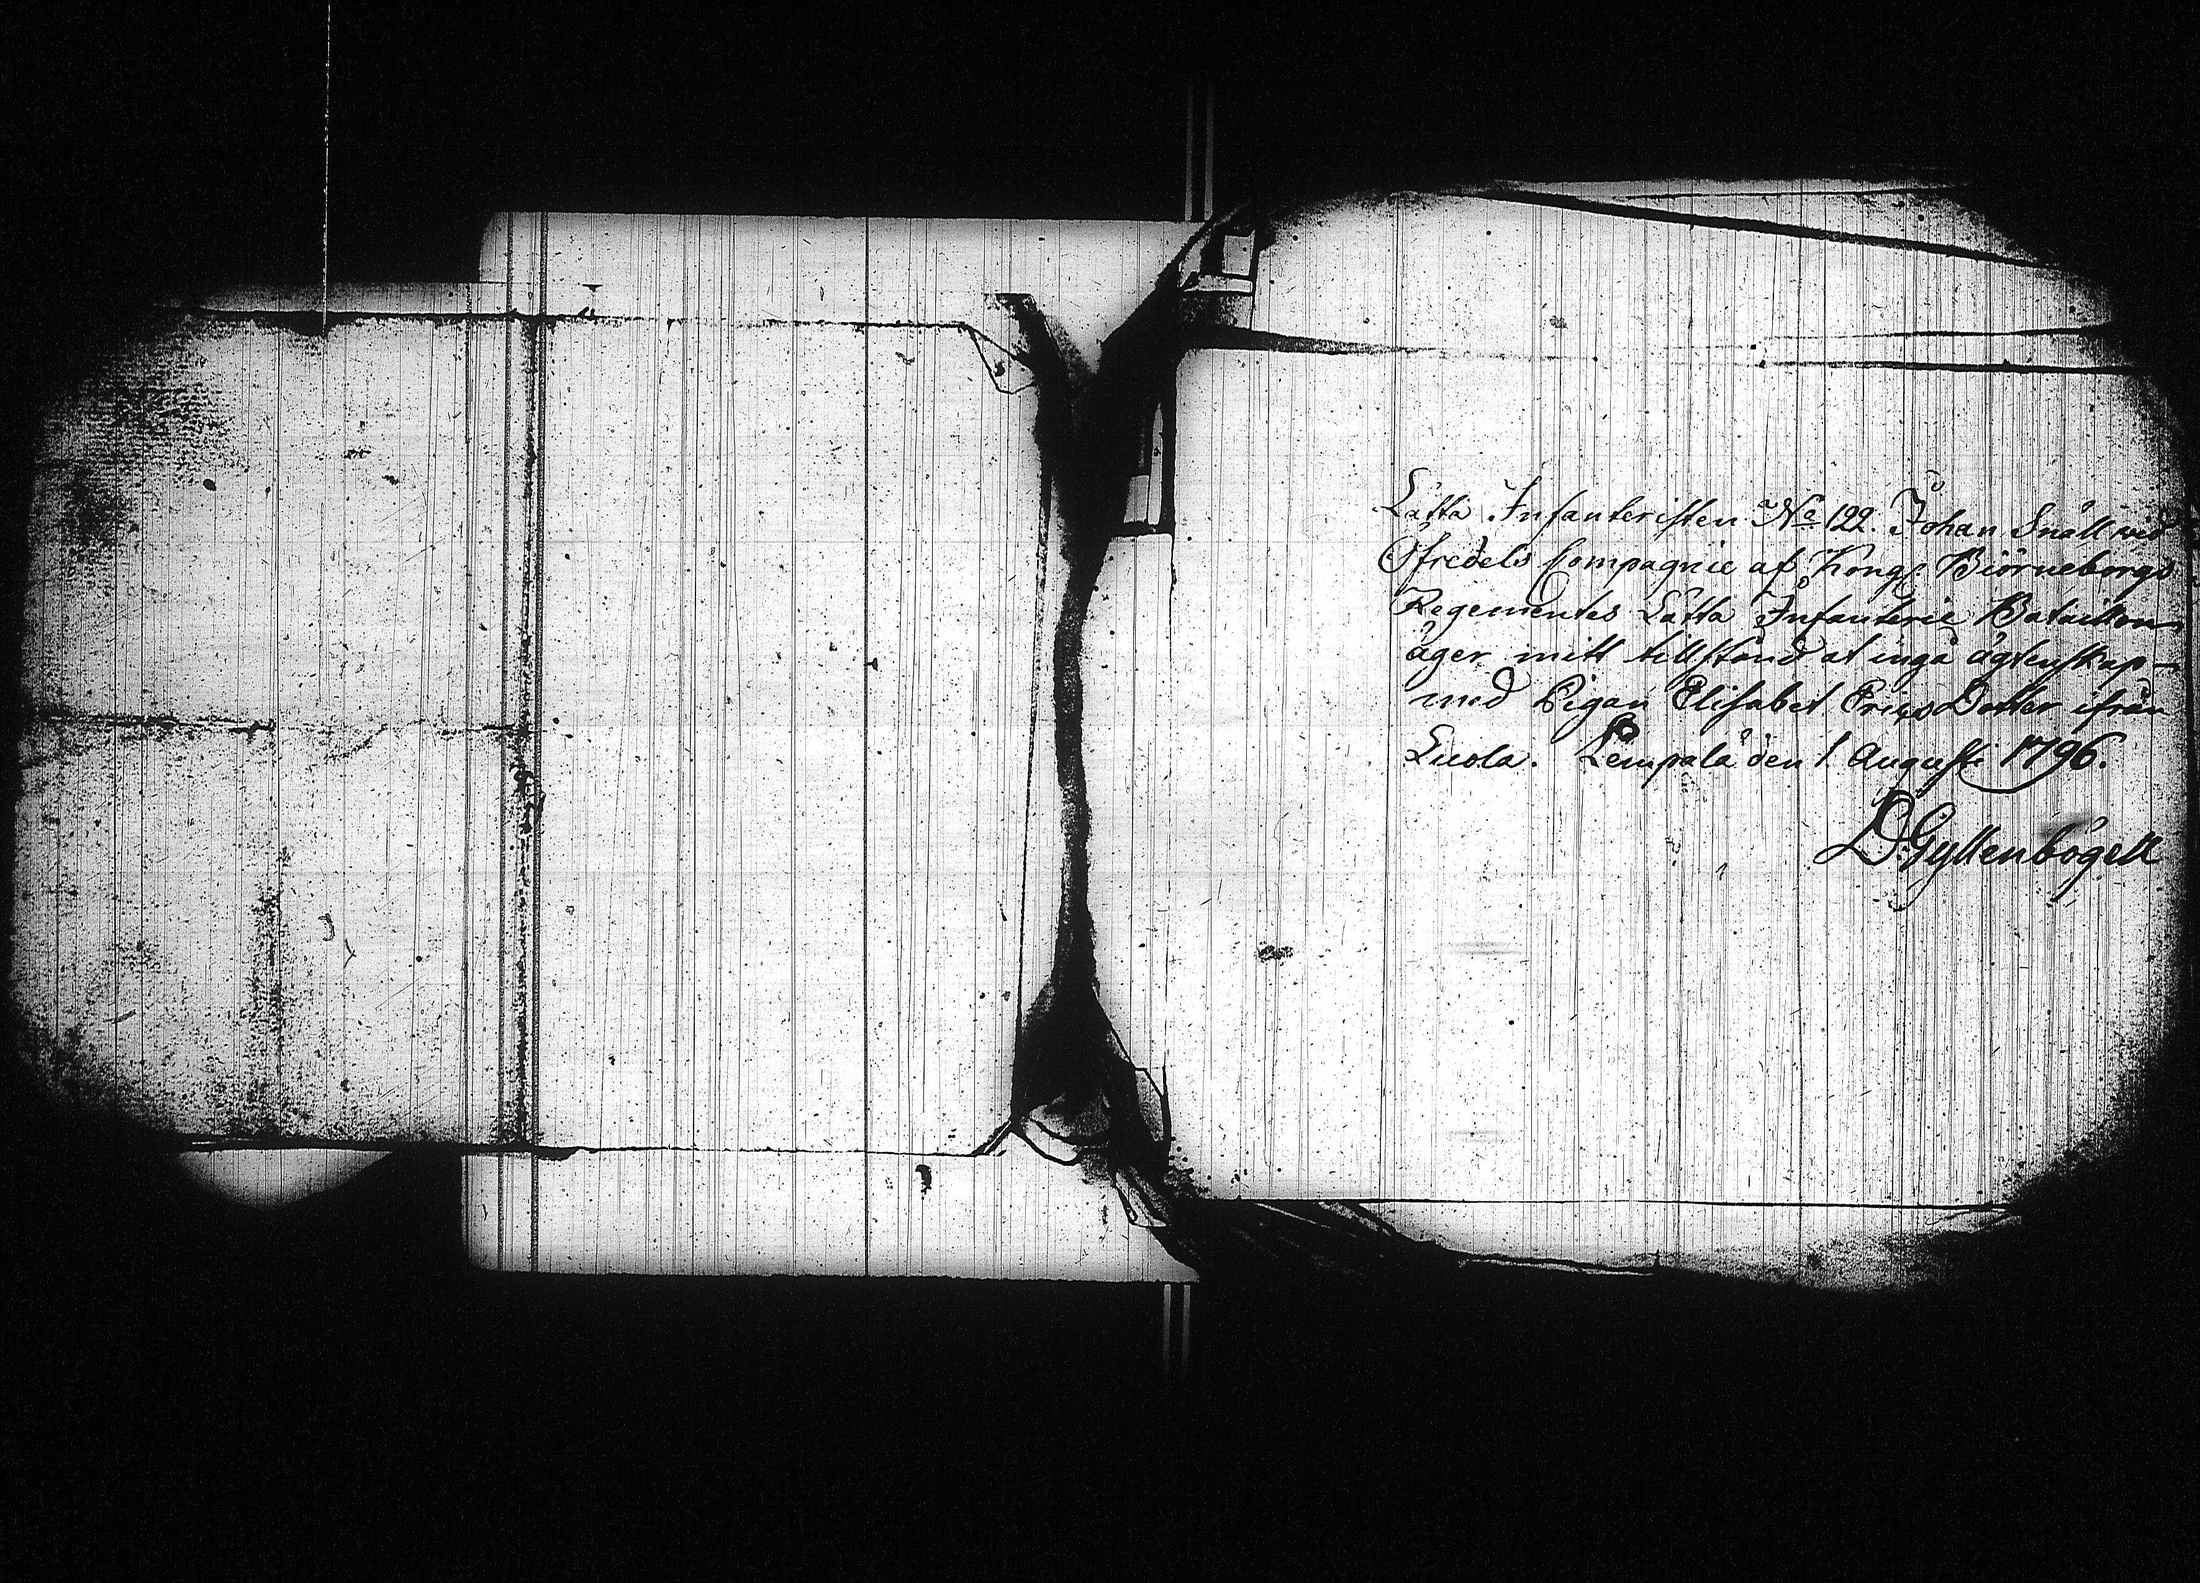 Lätta Infanteristen No 122. Johan Snäll wid
Öfredels Compagnie af Kongl Biörneborgs
Regementes Lätta Infanterie Bataillon
äger mitt tillstånd at ingå ägtenskap
med Pigan Elisabet Ericsdotter ifrån
Lempälä den 1 Augusti 1796.
D. Gyllenbögell